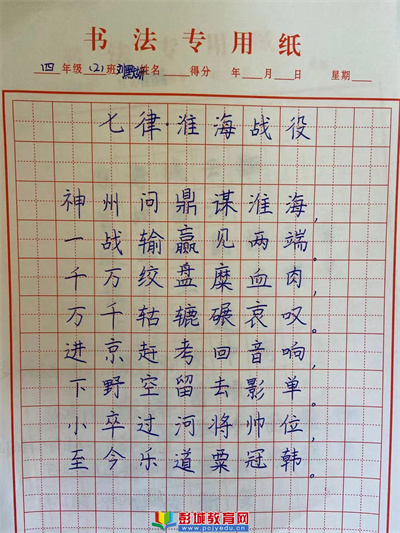 书法专用纸
四年级(2)班 姓名 得分 年 月 日 星期
七律·淮海战役
神州问鼎谋淮海,
一战输赢见两端。
千万绞盘糜血肉,
万千轱辘碾哀叹。
进京赶考回音响,
下野空留去影单。
小卒过河将帅位,
至今乐道粟冠韩。
彭城教育网
www.pcjyedu.cn